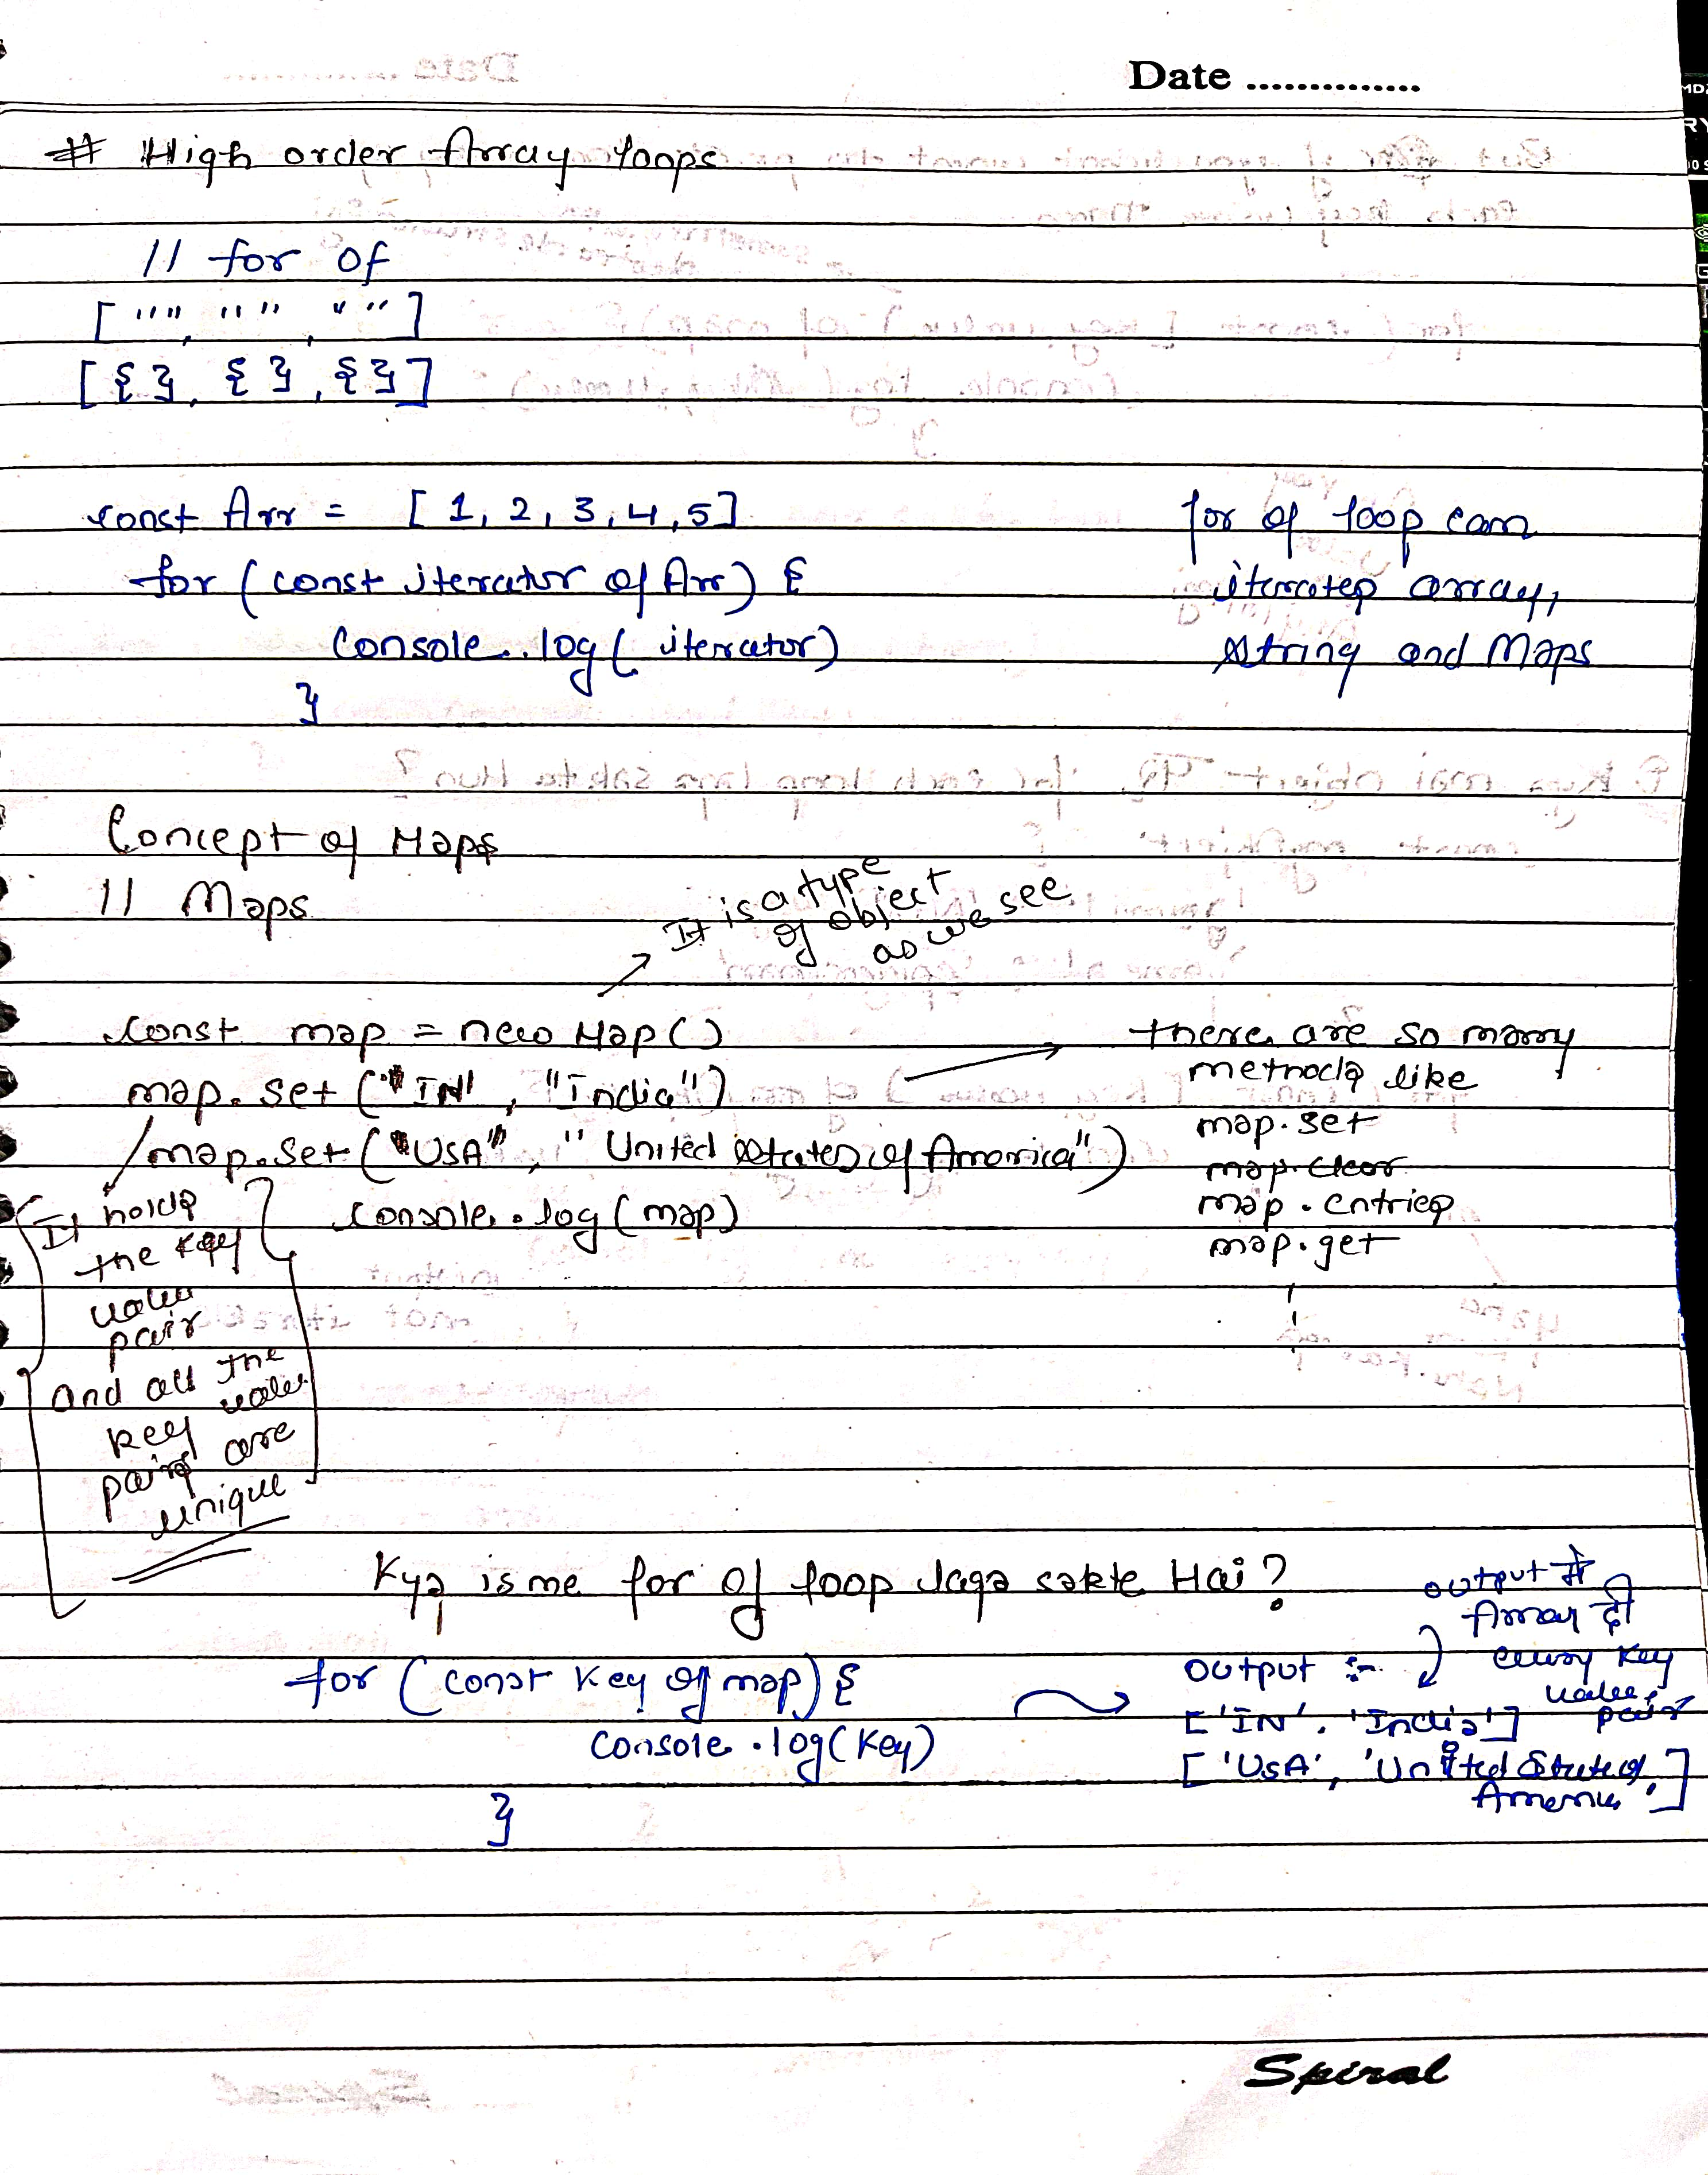 Date ..............
# High order Array loops
// for of
["", "", ""]
[{}, {}, {}]
const Arr = [1, 2, 3, 4, 5]
for (const iterator of Arr) {
console.log( iterator)
}
for of loop can
iterates array,
string and Maps
Concept of Maps
// Maps
It is a type
of object
as we see
const map = new Map()
map.set ("IN", "India")
map.set ("USA", "United States of America")
console.log (map)
there are so many
methods like
map.set
map.clear
map.entries
map.get
It holds
the key
value
pair
and all the
key value
pairs are
unique
Kya is me for of loop laga sakte Hai?
for (const key of map) {
console.log(key)
}
output :-
['IN', 'India']
['USA', 'United States of
America']
output में
Array दी
every key
value
pair
Spiral